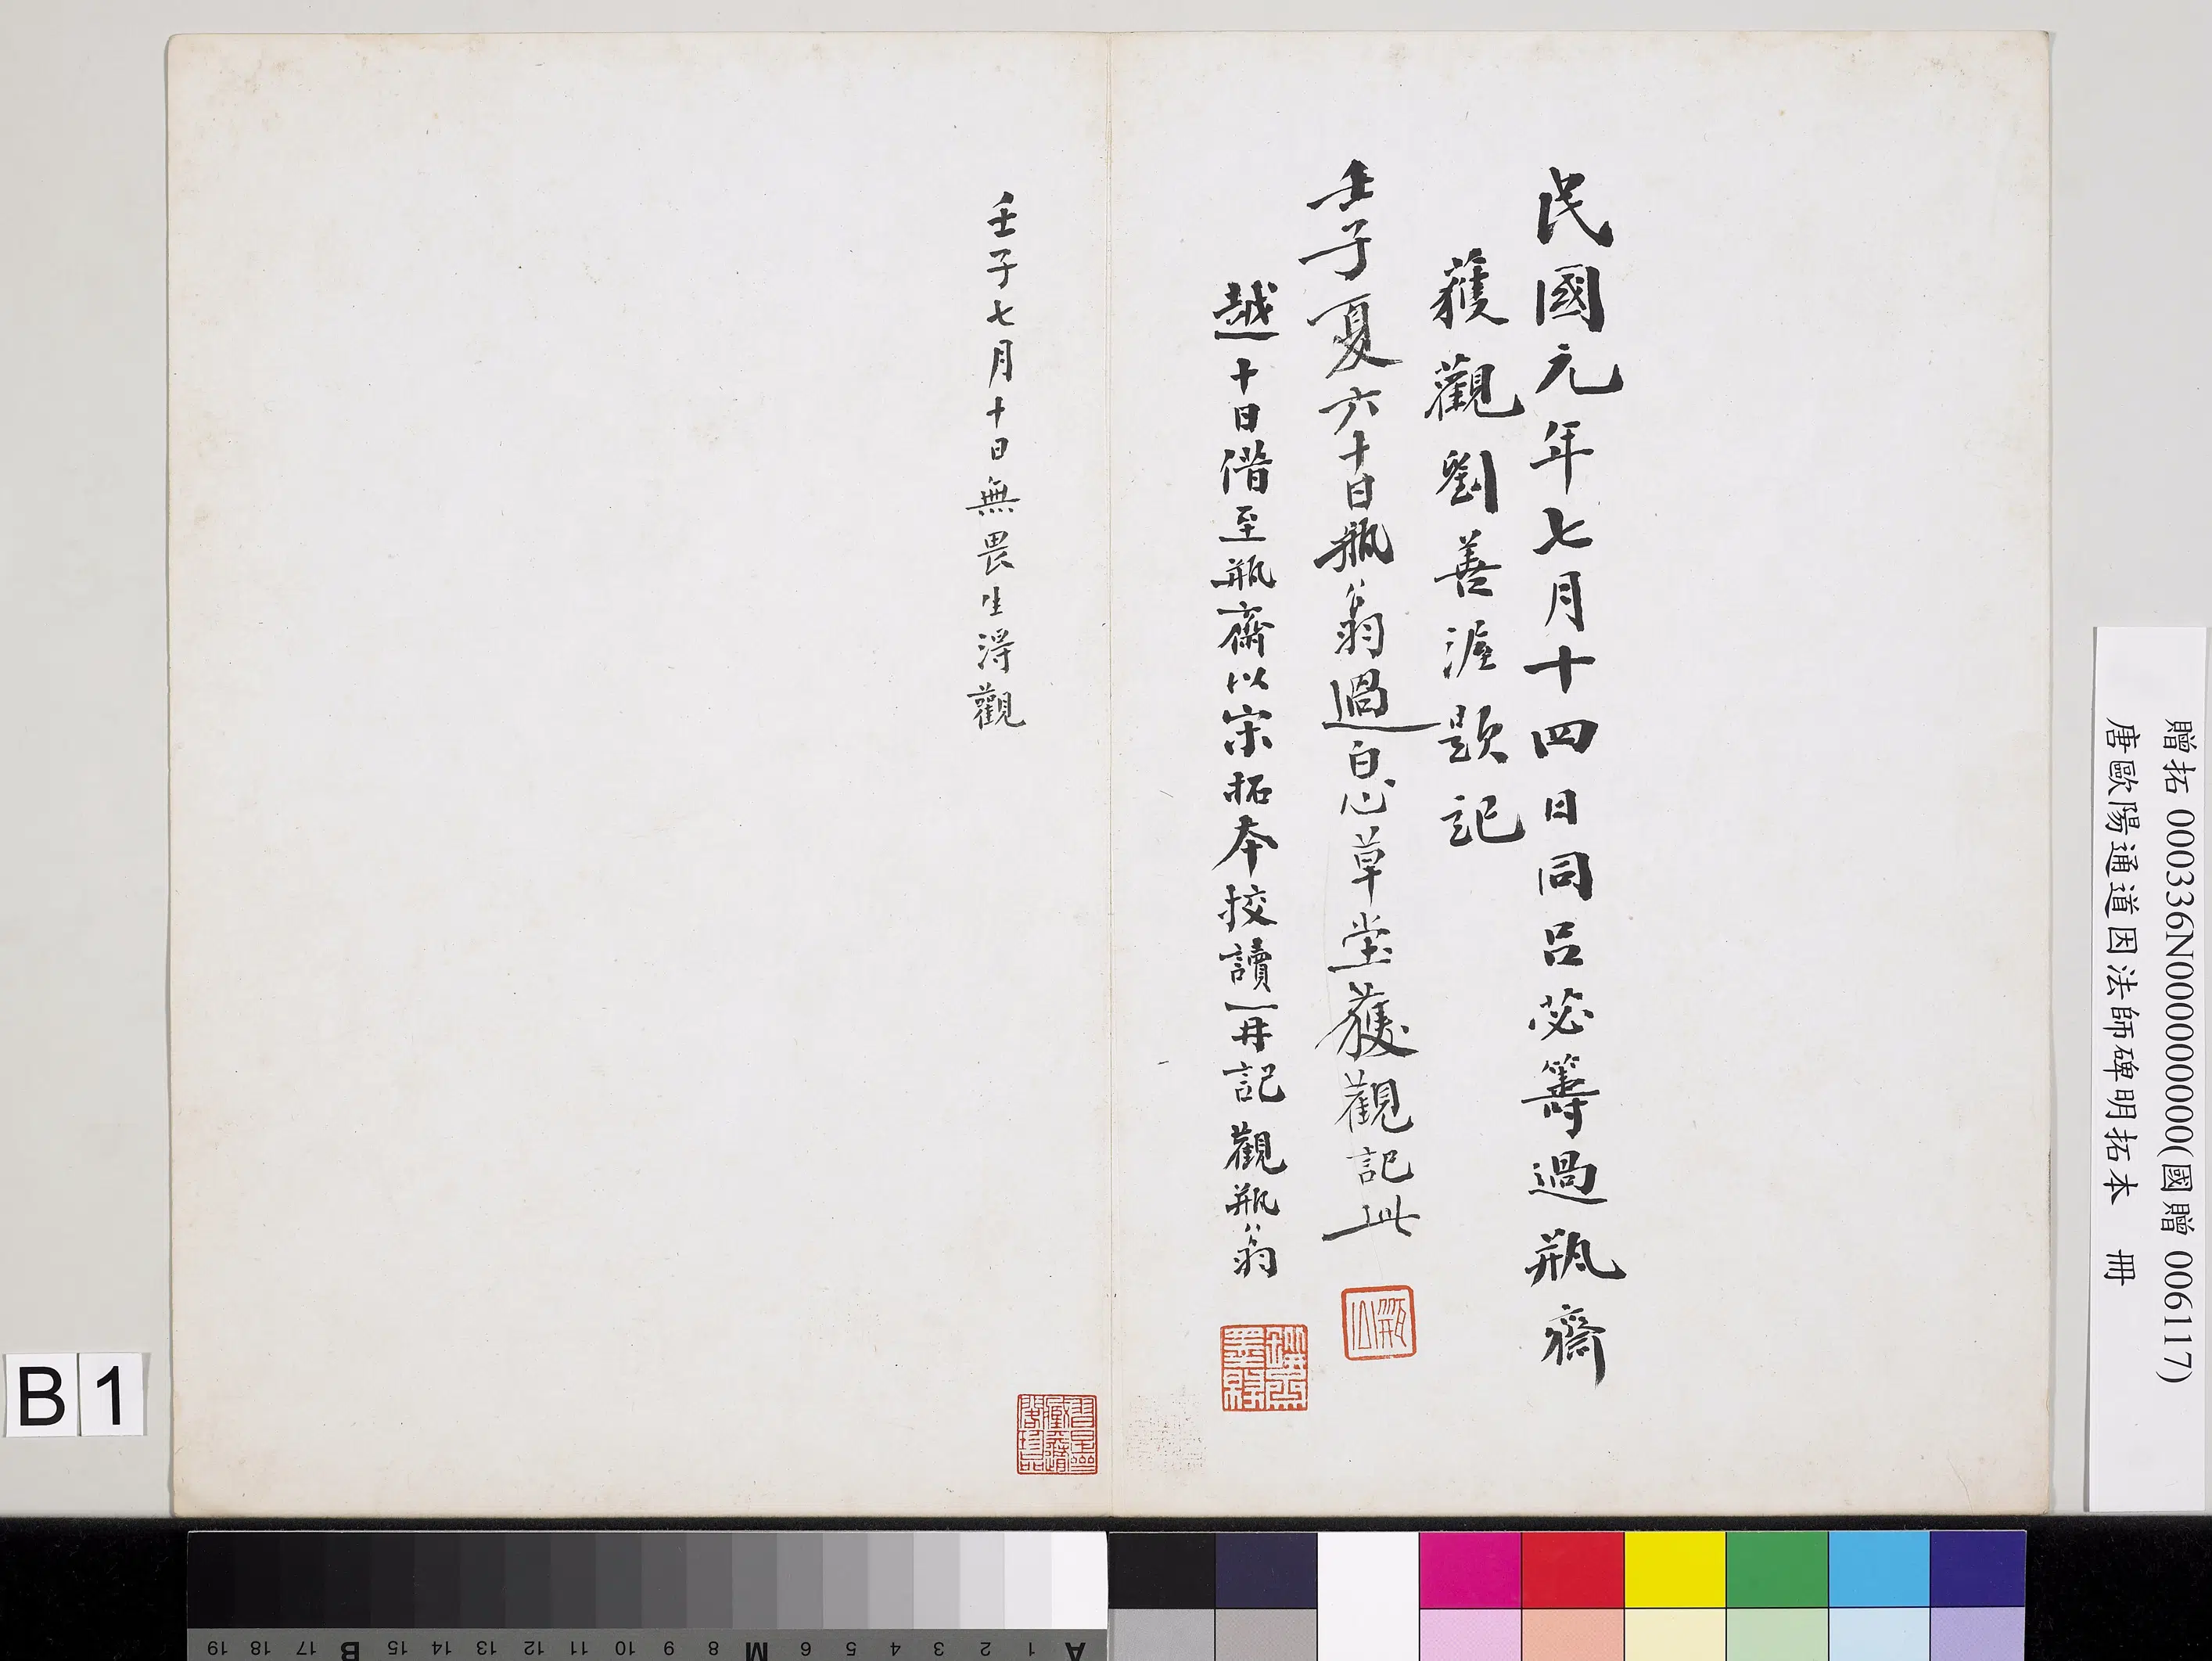 民國元年七月十四日同呂苾籌過瓶齋
獲觀劉善渥題記
壬子夏六十日瓶翁過自心草堂獲觀記此
越十日借至瓶齋以宋拓本挍讀一再記觀瓶翁
壬子七月十日無畏生淂觀
贈拓 000336N000000000(國贈 006117)
唐歐陽通道因法師碑明拓本 冊
B 1
19 18 17 B 15 14 13 12 11 10 9 8 M 6 5 4 3 2 1 A